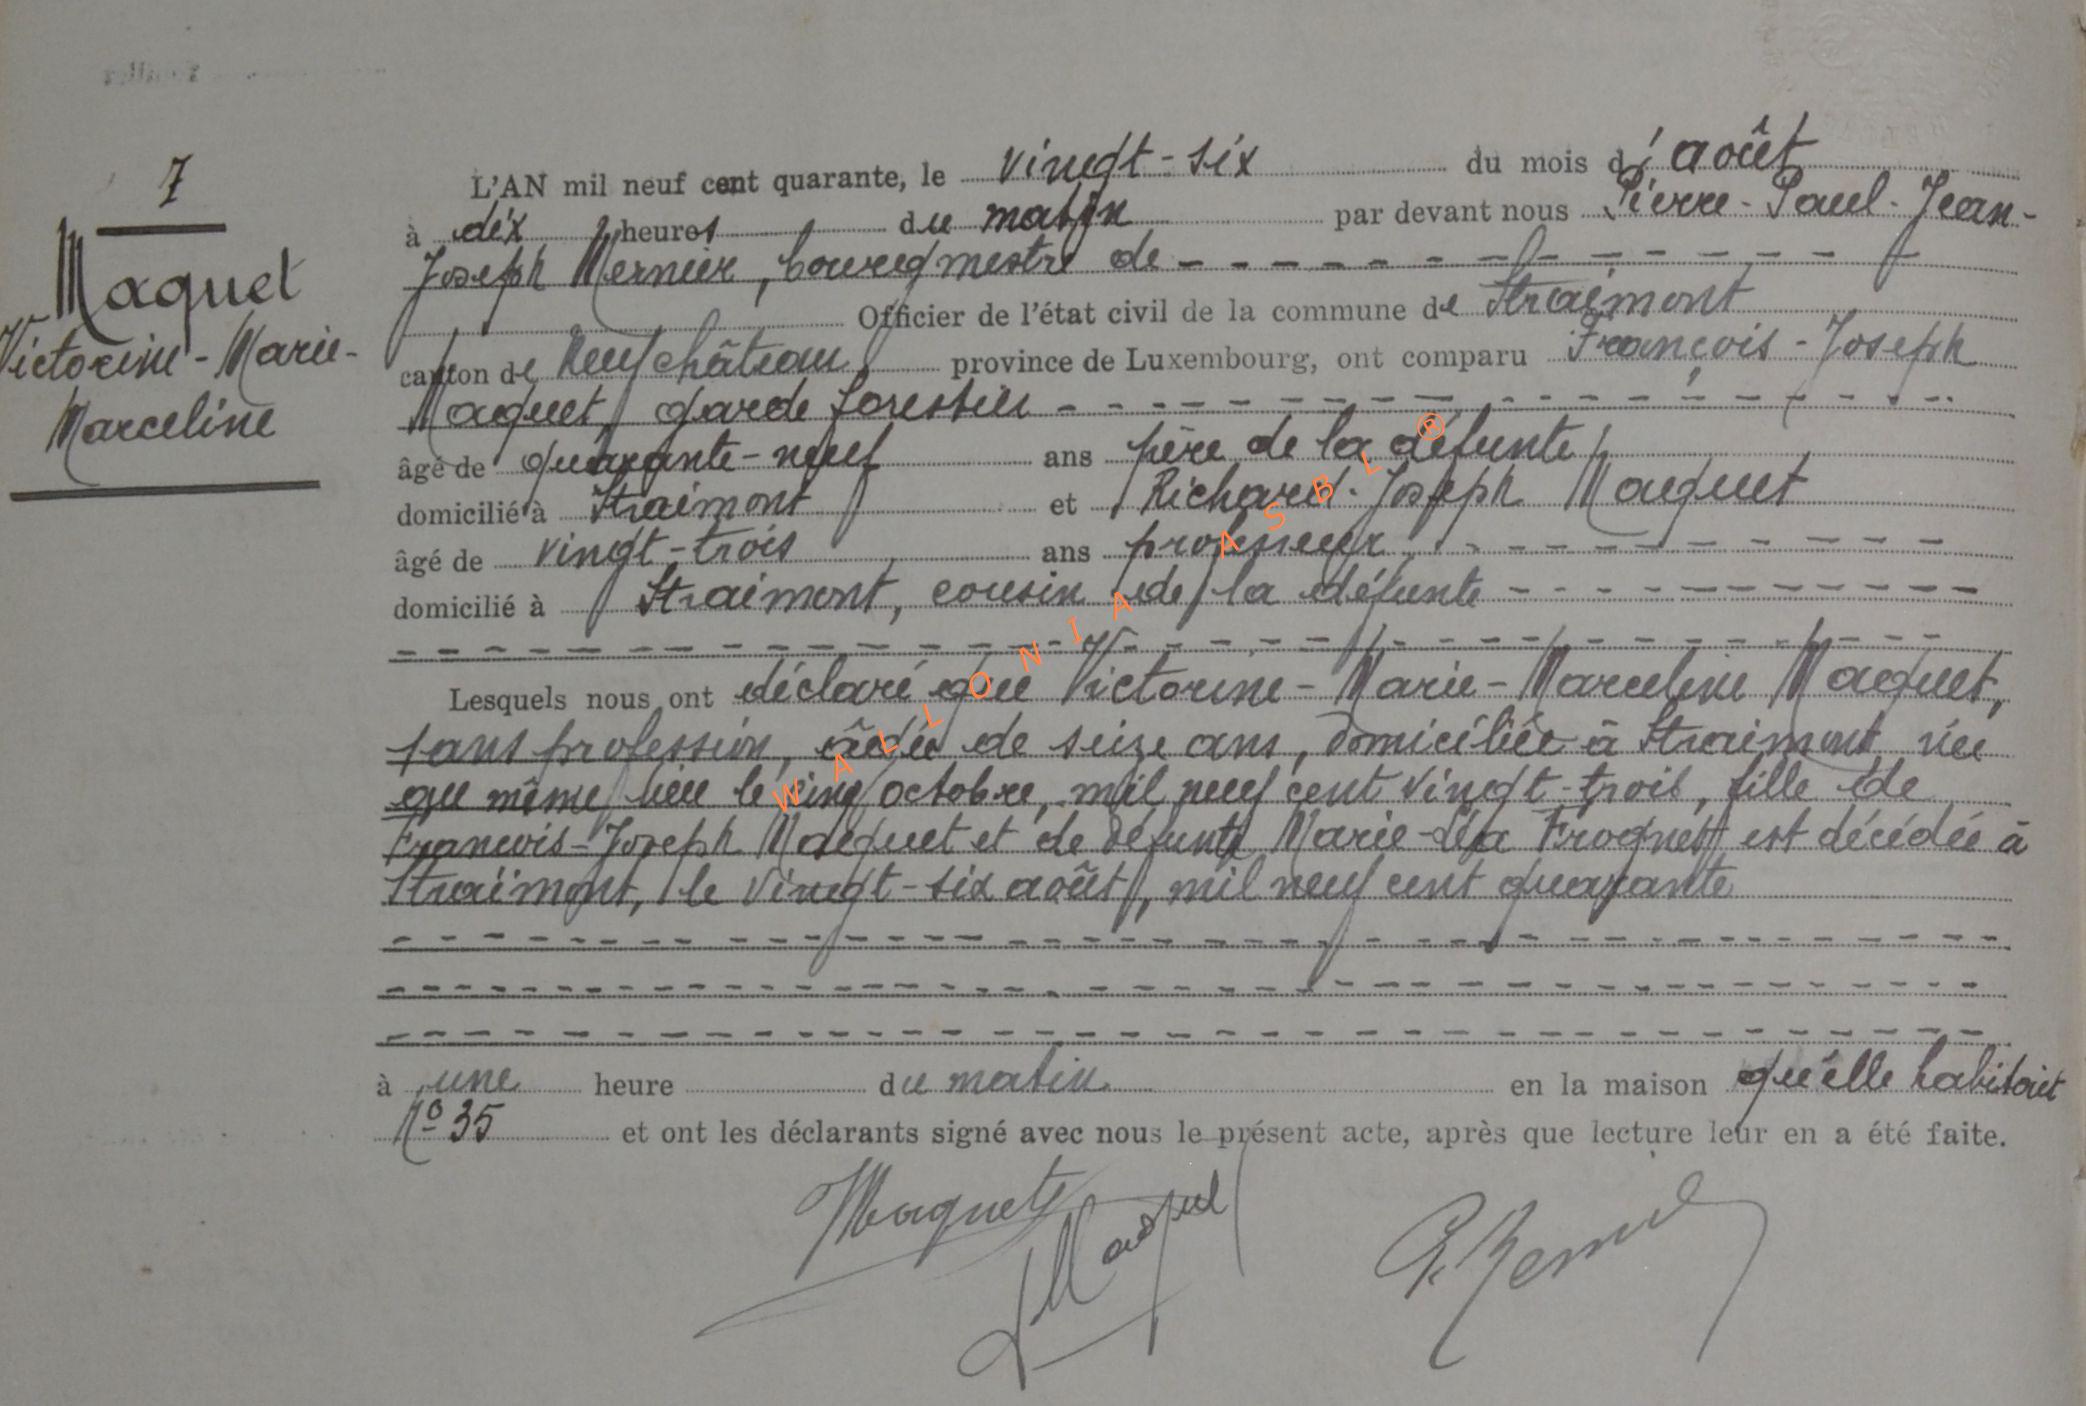 7
Maquet
Victorine-Marie-
Marceline
L'AN mil neuf cent quarante, le vingt-six du mois d'août
à dix heures du matin par devant nous Pierre-Paul-Jean-
Joseph Mernier, bourgmestre de
Officier de l'état civil de la commune de Straimont
canton de Neufchâteau province de Luxembourg, ont comparu François-Joseph
Maquet, garde forestier
âgé de quarante-neuf ans père de la défunte
domicilié à Straimont et Richard-Joseph Maquet
âgé de vingt-trois ans professeur
domicilié à Straimont, cousin de la défunte
Lesquels nous ont déclaré que Victorine-Marie-Marceline Maquet,
sans profession, âgée de seize ans, domiciliée à Straimont, née
au même lieu le cinq octobre, mil neuf cent vingt-trois, fille de
François-Joseph Maquet et de défunte Marie-Léa Frognet est décédée à
Straimont, le vingt-six août, mil neuf cent quarante
à une heure du matin en la maison qu'elle habitait
No 35 et ont les déclarants signé avec nous le présent acte, après que lecture leur en a été faite.
Maquet
Maquet
WALLONIA ASBL ®